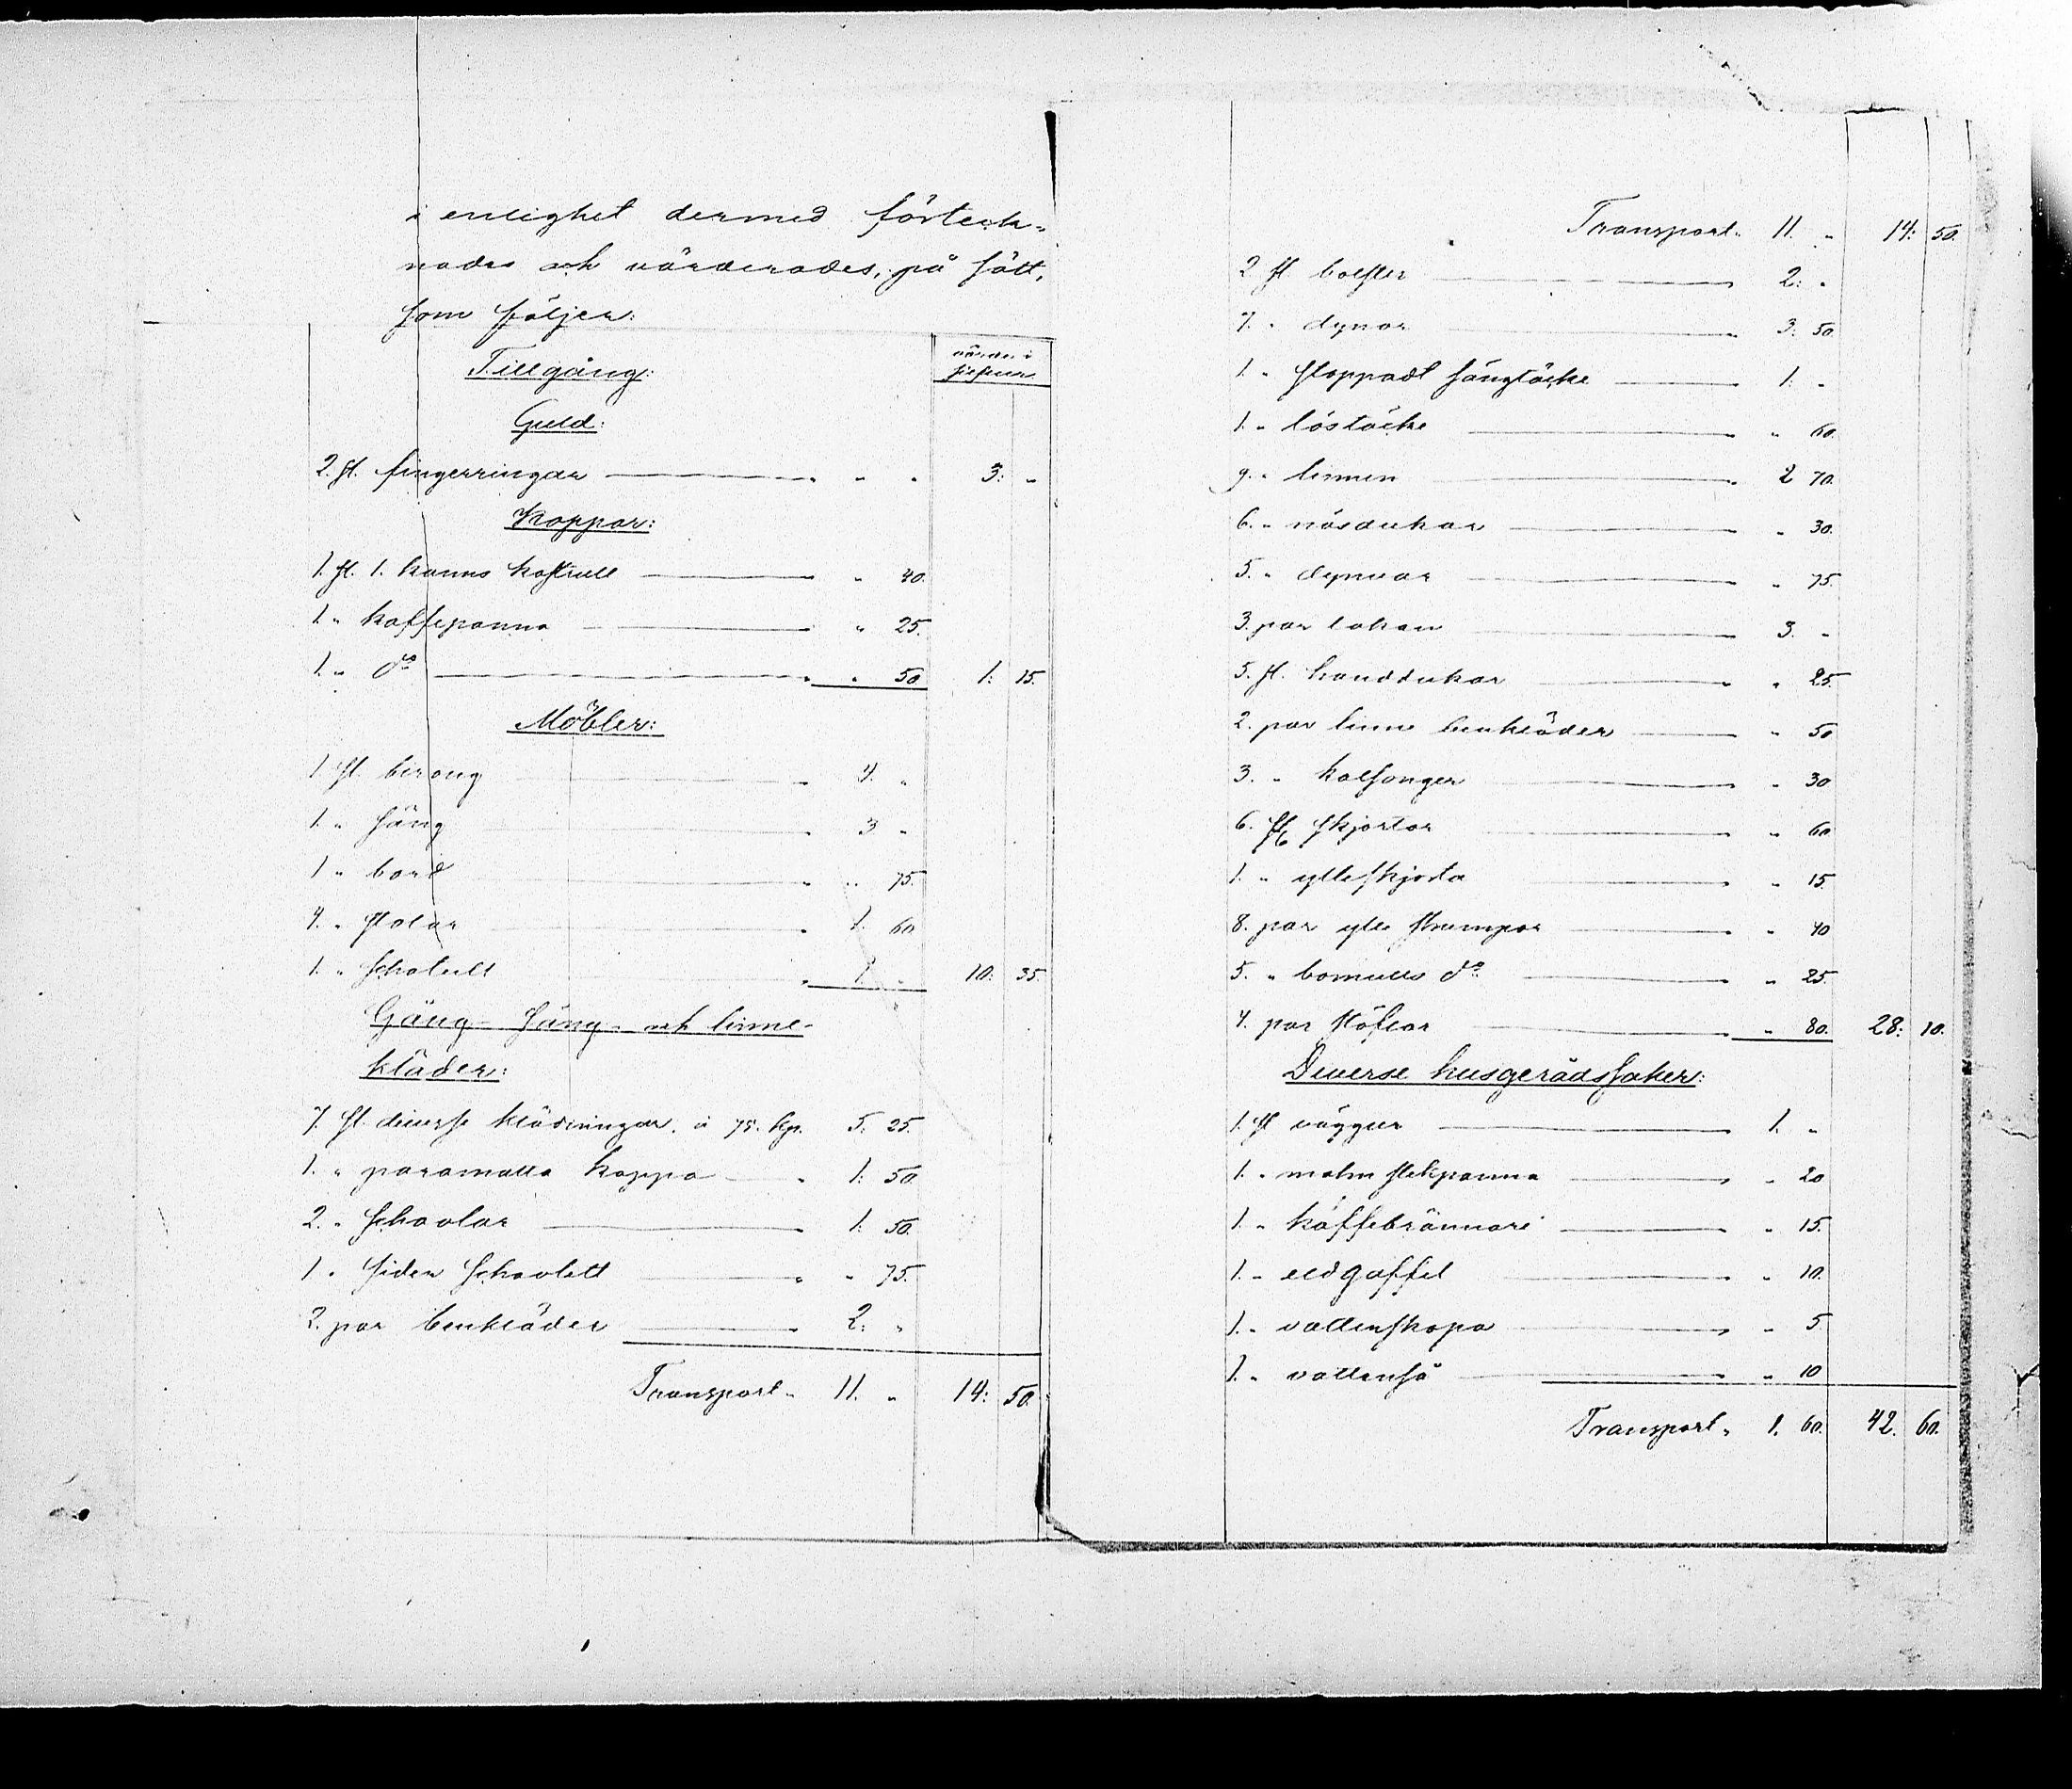 i enlighet dermed förteck-
nades och värderades, på sätt,
som följer:
Tillgång:
värde i
silfver
Guld:
2. st. fingerringar " " " 3: "
Koppar:
1. st. 1. kanns kastrull " 40.
1. " kaffepanna " 25.
1. " do " 50 1: 15.
Möbler:
1 st. birong 4. "
1. " säng 3 "
1 " bord " 75.
4. " stolar 1. 60
1. " schatull 1. " 10: 35.
Gång- säng- och linne-
kläder:
7. st. diverse klädningar, à 75. kp. 5: 25.
1. " paramatta kappa 1: 50
2. " schavlar 1: 50.
1 " siden schavlett " 75.
2. par benkläder 2: "
Transport " 11. " 14: 50.
Transport " 11. " 14: 50.
2 st bolster 2: "
7. " dynor 3: 50.
1. " stoppadt sängtäcke 1: "
1. " löstäcke " 60.
9. " linnen 2 70.
6. " näsdukar " 30.
5. " dynvar " 75.
3. par lakan 3. "
5. st. handdukar " 25.
2. par linne benkläder " 50
3. " kalsonger " 30
6. st skjortor " 60
1. " ylleskjorta " 15.
8. par ylle strumpor " 40
5. " bomulls do " 25.
4. par stöflar " 80. 28: 10.
Diverse husgerådssaker:
1. st väggur 1. "
1. " malm stekpanna " 20
1. " kaffebrännare " 15.
1. " eldgaffel " 10.
1. " vattenskopa " 5
1. " vattenså " 10
Transport " 1. 60. 42. 60.